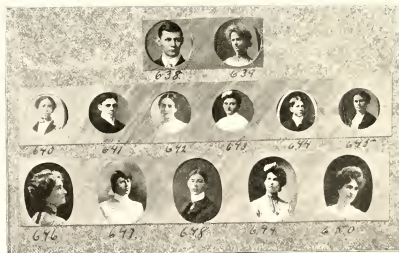 638. 639
640 641 642 643 644 645
646 647. 648 649 650